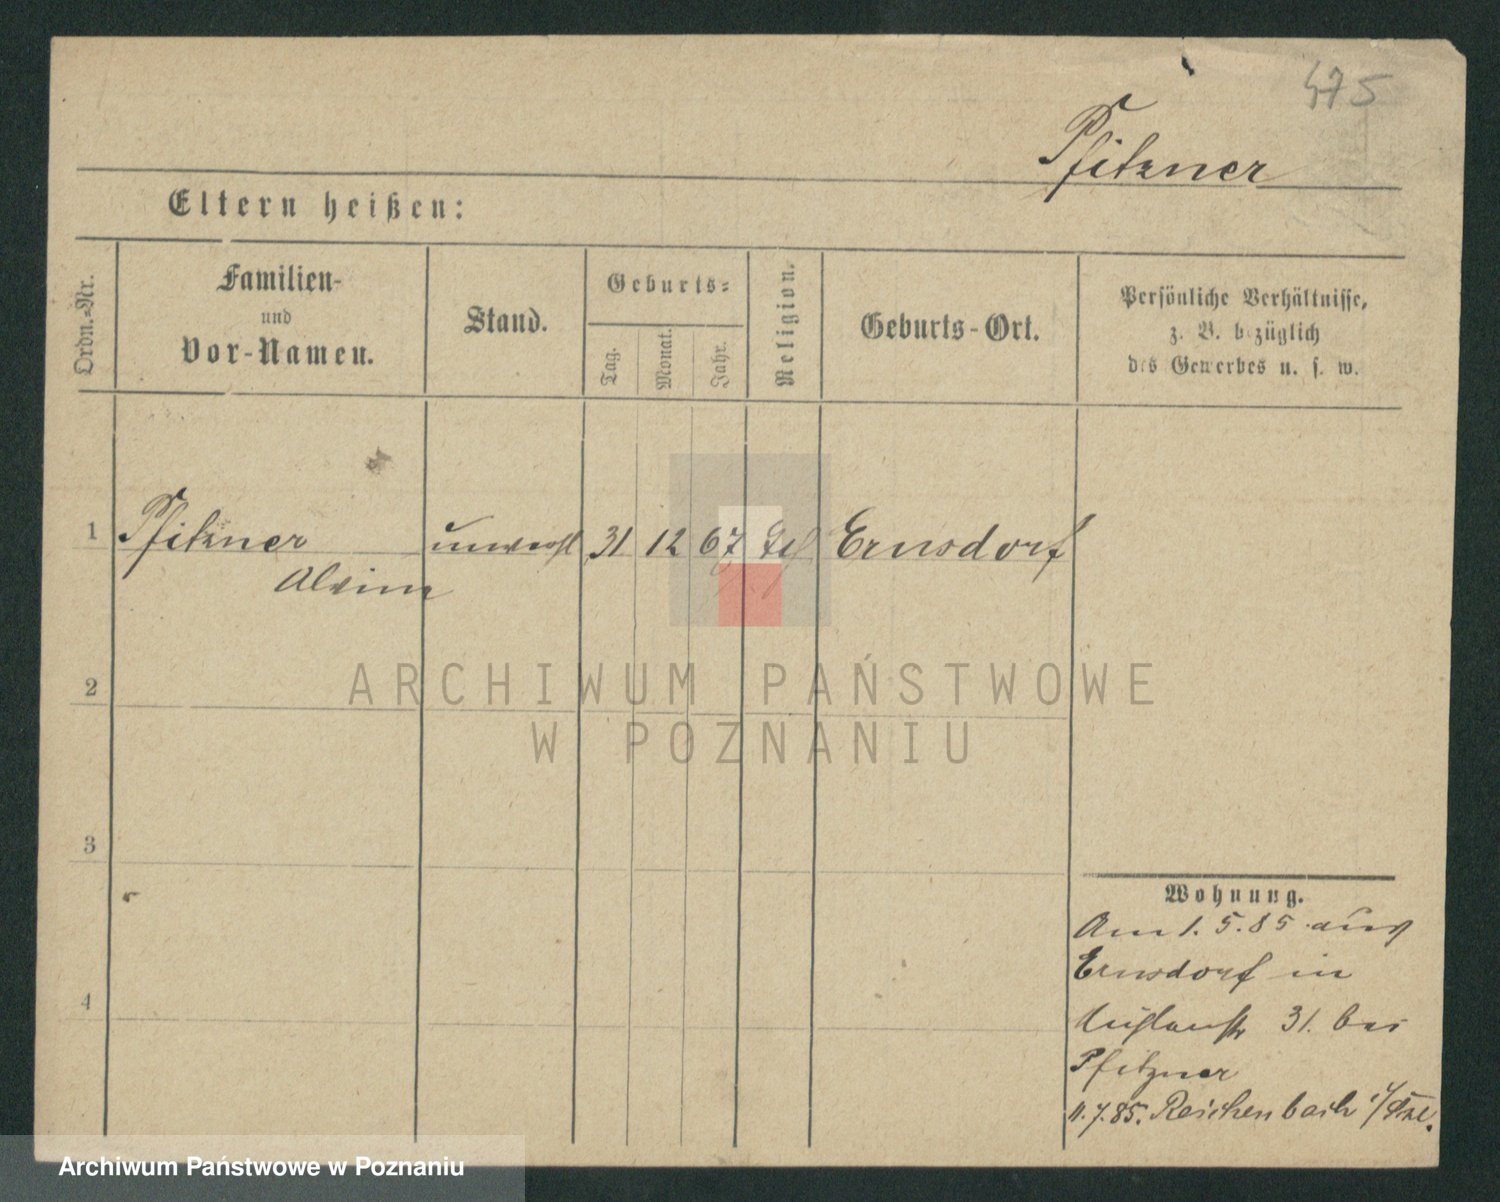 475
Pfitzner
Eltern heißen:
Ordn.-Nr.
Familien-
und
Vor-Namen.
Stand.
Geburts-
Tag.
Monat.
Jahr.
Religion.
Geburts-Ort.
Persönliche Verhältnisse,
z. B. bezüglich
des Gewerbes u. s. w.
1 Pfitzner unverehl 31 12 67 Ernsdorf
Alvin
2
3
4
Wohnung.
Am 1. 5. 85 aus
Ernsdorf in
31. bei
Pfitzner
11.7.85. Reichenbach i/Schl.
ARCHIWUM PAŃSTWOWE
W POZNANIU
Archiwum Państwowe w Poznaniu